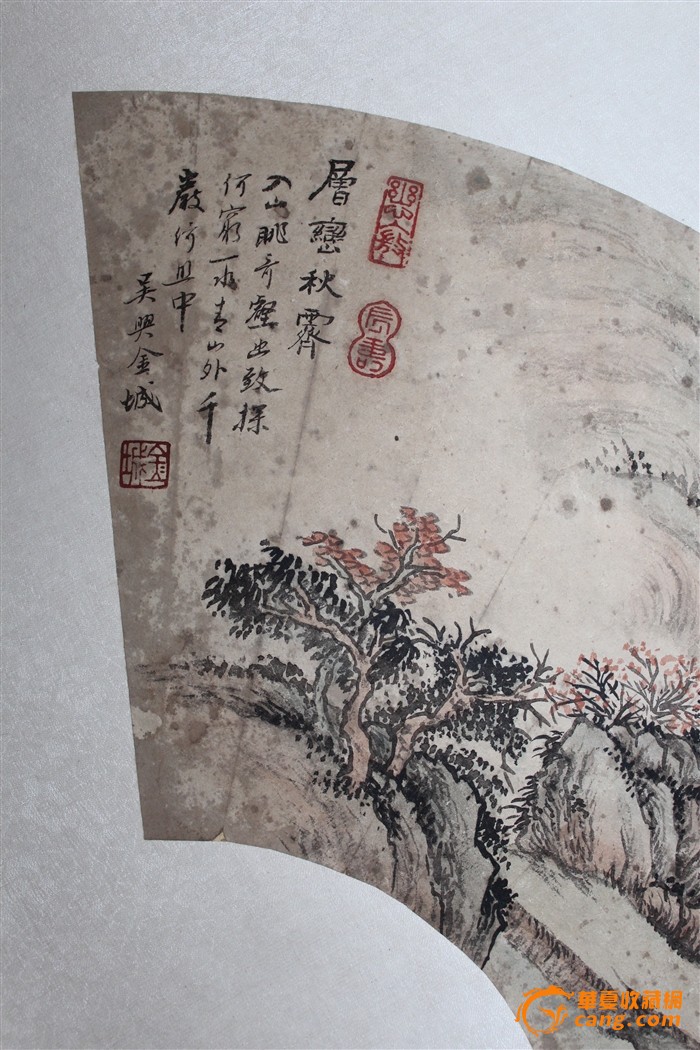 層巒秋霽
入山眺奇壑幽致探
何窮一水青山外千
巖何且中
吳興金城
金城
華夏收藏網
cang.com